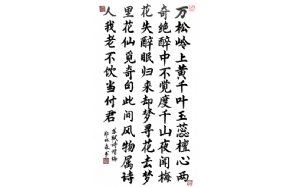 万松岭上黄千叶玉蕊檀心两
奇绝醉中不觉度千山夜闻梅
花失醉眠归来却梦寻花去梦
里花仙觅奇句此间风物属诗
人我老不饮当付君